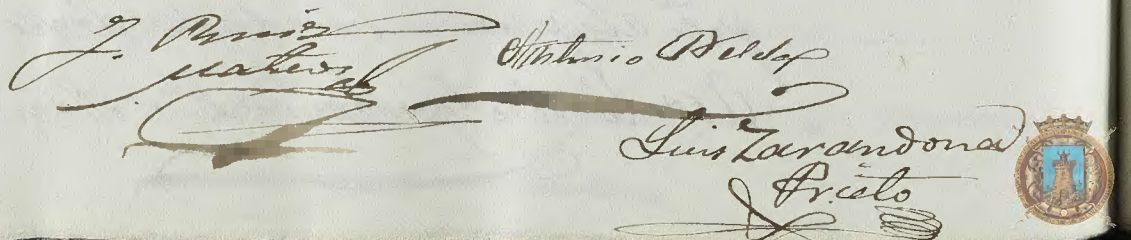 J. Ruiz
Mateos
Antonio Belda
Luis Zarandona
Prieto